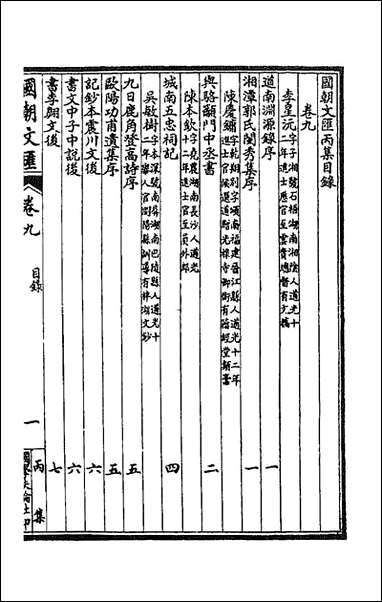 國朝文匯丙集目錄
卷九
李星沅 字子湘號石梧湖南湘陰人道光十二年進士歷官至雲貴總督有文稿
道南淵源錄序 一
湘潭郭氏閨秀集序 一
陳慶鏞 字乾翔別字頌南福建晉江縣人道光十二年進士官候選道贈光祿寺卿銜有籀經堂類稿
與駱籲門中丞書 二
陳本欽 字堯農湖南長沙人道光年進士官至員外郎
城南五忠祠記 四
吳敏樹 字本深號南屏湖南巴陵縣人道光十二年舉人官瀏陽縣訓導有柈湖文鈔
九日鹿角登高詩序 五
歐陽功甫遺集序 五
記鈔本震川文後 六
書文中子中說後 六
書李翱文後 七
國朝文匯 卷九 目錄 一 丙集